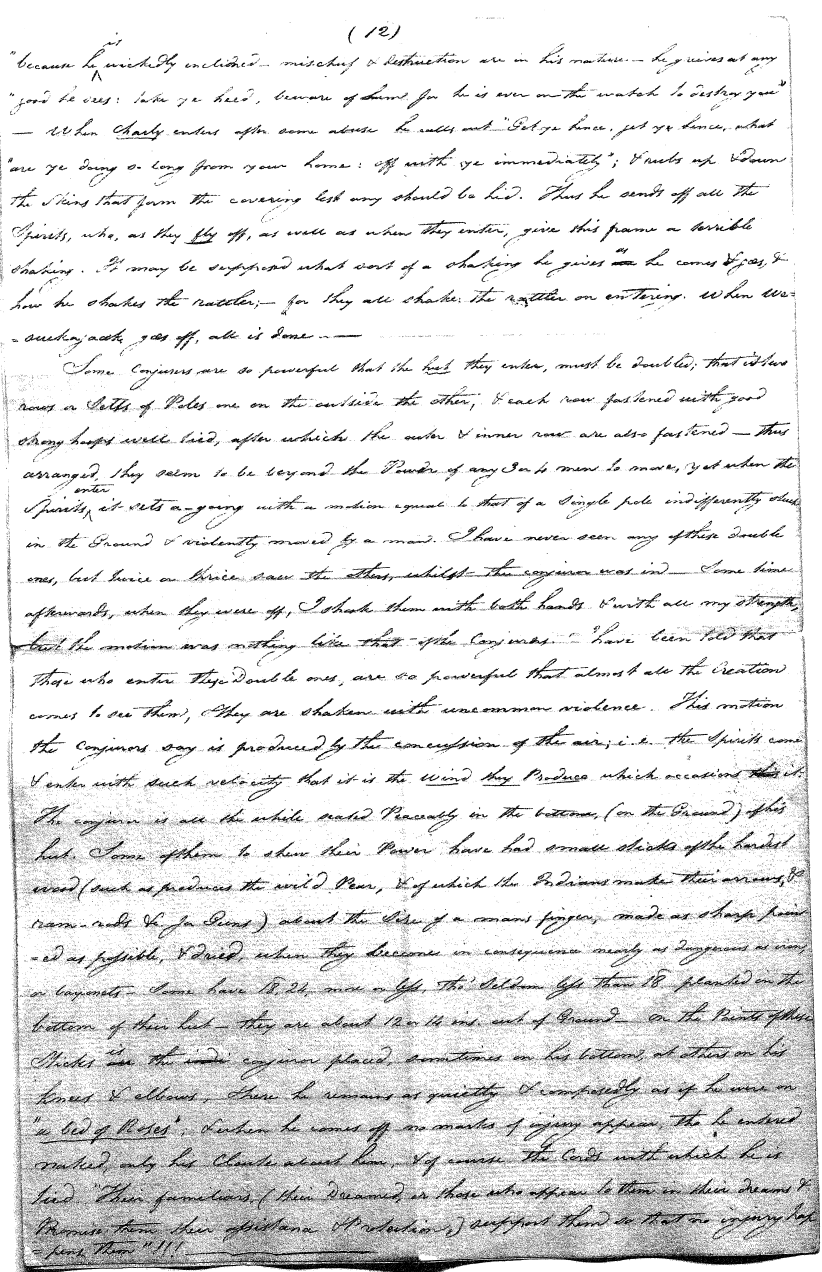 (12)
"because he is wickedly inclined – mischief & destruction are in his nature. – he grieves at any
"good he sees: take ye heed, beware of him for he is ever on the watch to destroy you"
— When Charly enters after some abuse he calls out "Get ye hence, get ye hence, what
"are ye doing so long from your home: off with ye immediately"; & rubs up & down
the Skins that form the covering lest any should be hid. Thus he sends off all the
Spirits, who, as they fly off, as well as when they enter, give this frame a terrible
shaking. It may be supposed what sort of a shaking he gives as he comes & goes, &
how he shakes the rattler; – for they all shake the rattler on entering. When We=
=suckajaak goes off, all is done. —
Some Conjurors are so powerful that the hut they enter, must be doubled; that is two
rows or Setts of Poles one on the outside the other, & each row fastened with good
strong hoops well tied, after which the outer & inner row are also fastened – thus
arranged, they seem to be beyond the Power of any 3 or 4 men to move, yet when the
Spirits enter, it sets a-going with a motion equal to that of a single pole indifferently stuck
in the Ground & violently moved by a man. I have never seen any of these double
ones, but twice or thrice saw the others, whilst the conjuror was in – Some time
afterwards, when they were off, I shook them with both hands & with all my strength,
but the motion was nothing like that of the Conjurors. – I have been told that
those who enter these double ones, are so powerful that almost all the Creation
comes to see them, & they are shaken with uncommon violence. This motion
the conjurors say is produced by the concussion of the air; i.e. the Spirits come
& enter with such velocity that it is the wind they Produce which occasions it:
The conjuror is all the while seated Peaceably in the bottom, (on the Ground) of his
hut. Some of them to shew their Power have had small sticks of the hardest
wood (such as produces the wild Pear, & of which the Indians make their arrows, &
ram-rods &c for Guns) about the Size of a mans finger, made as sharp point
=ed as possible, & dried, when they becomes in consequence nearly as dangerous as iron,
or bayonets – Some have 18, 24, more or less, tho' Seldom less than 18 planted in the
bottom of their hut – they are about 12 or 14 ins. out of Ground – On the Points of these
Sticks is the conjuror placed, sometimes on his bottom, at others on his
knees & elbows, there he remains as quietly & composedly as if he were on
"a bed of Roses"; & when he comes off no marks of injury appear, tho he entered
naked, only his Cloute about him, & of course the Cords with which he is
tied "Their familiars, (their Dreamed, or those who appear to them in their dreams &
Promise them their assistance & Protection,) support them so that no injury hap
=pens them"!!!